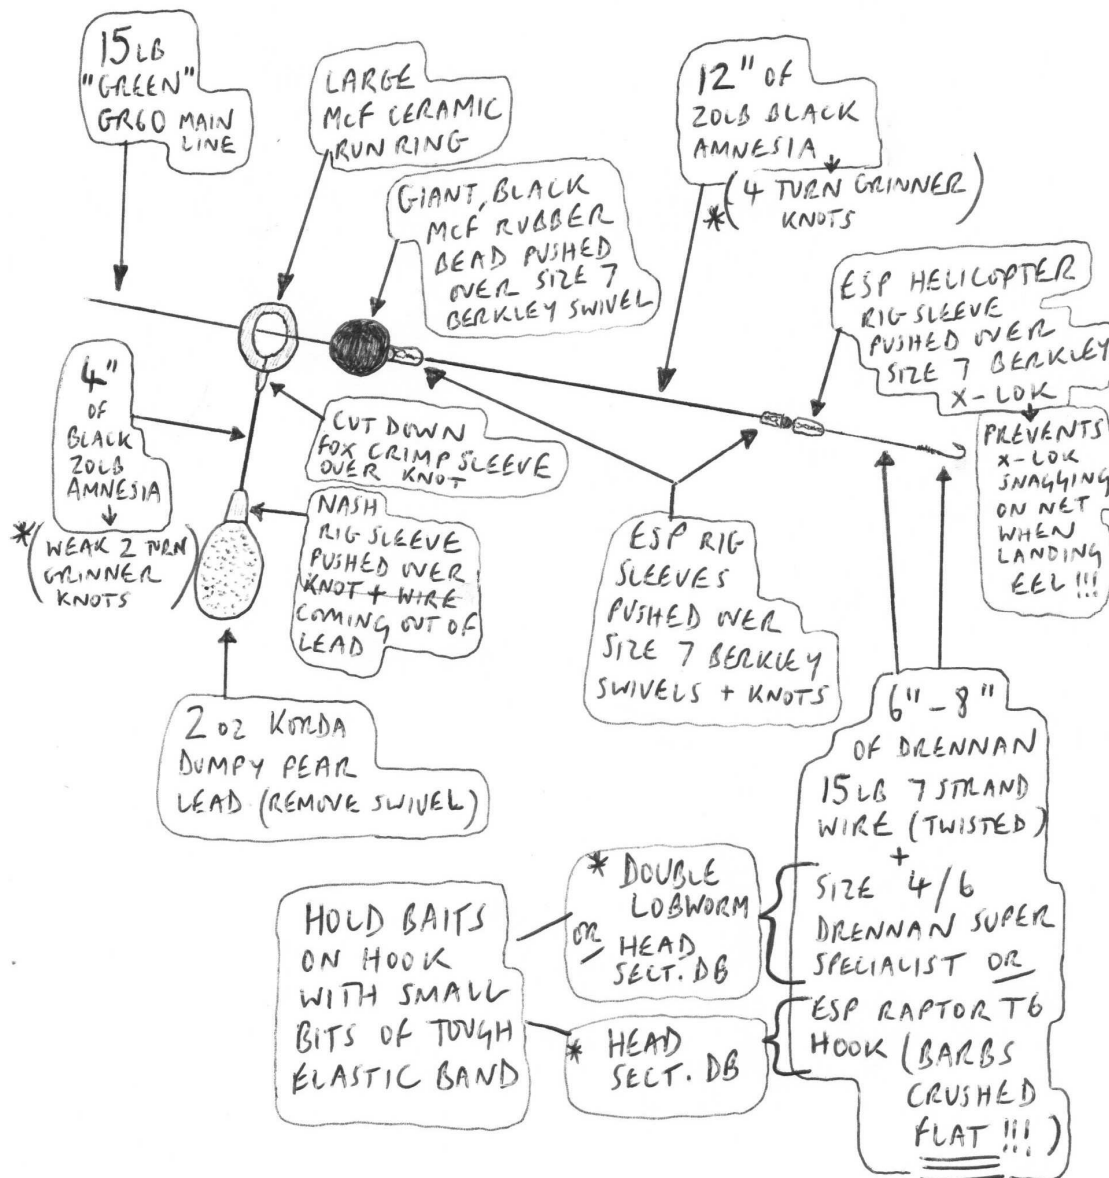 15LB
"GREEN"
GR60 MAIN
LINE
LARGE
McF CERAMIC
RUN RING
GIANT, BLACK
McF RUBBER
BEAD PUSHED
OVER SIZE 7
BERKLEY SWIVEL
12" OF
20LB BLACK
AMNESIA
*(4 TURN GRINNER
KNOTS)
ESP HELICOPTER
RIG SLEEVE
PUSHED OVER
SIZE 7 BERKLEY
X-LOK
PREVENTS
X-LOK
SNAGGING
ON NET
WHEN
LANDING
EEL !!!
4"
OF
BLACK
20LB
AMNESIA
*(WEAK 2 TURN
GRINNER
KNOTS)
CUT DOWN
FOX CRIMP SLEEVE
OVER KNOT
NASH
RIG SLEEVE
PUSHED OVER
KNOT + WIRE
COMING OUT OF
LEAD
ESP RIG
SLEEVES
PUSHED OVER
SIZE 7 BERKLEY
SWIVELS + KNOTS
2 OZ KORDA
DUMPY PEAR
LEAD (REMOVE SWIVEL)
6" - 8"
OF DRENNAN
15LB 7 STRAND
WIRE (TWISTED)
+
SIZE 4/6
DRENNAN SUPER
SPECIALIST OR
ESP RAPTOR T6
HOOK (BARBS
CRUSHED
FLAT !!!)
* DOUBLE
LOBWORM
OR HEAD
SECT. DB
* HEAD
SECT. DB
HOLD BAITS
ON HOOK
WITH SMALL
BITS OF TOUGH
ELASTIC BAND